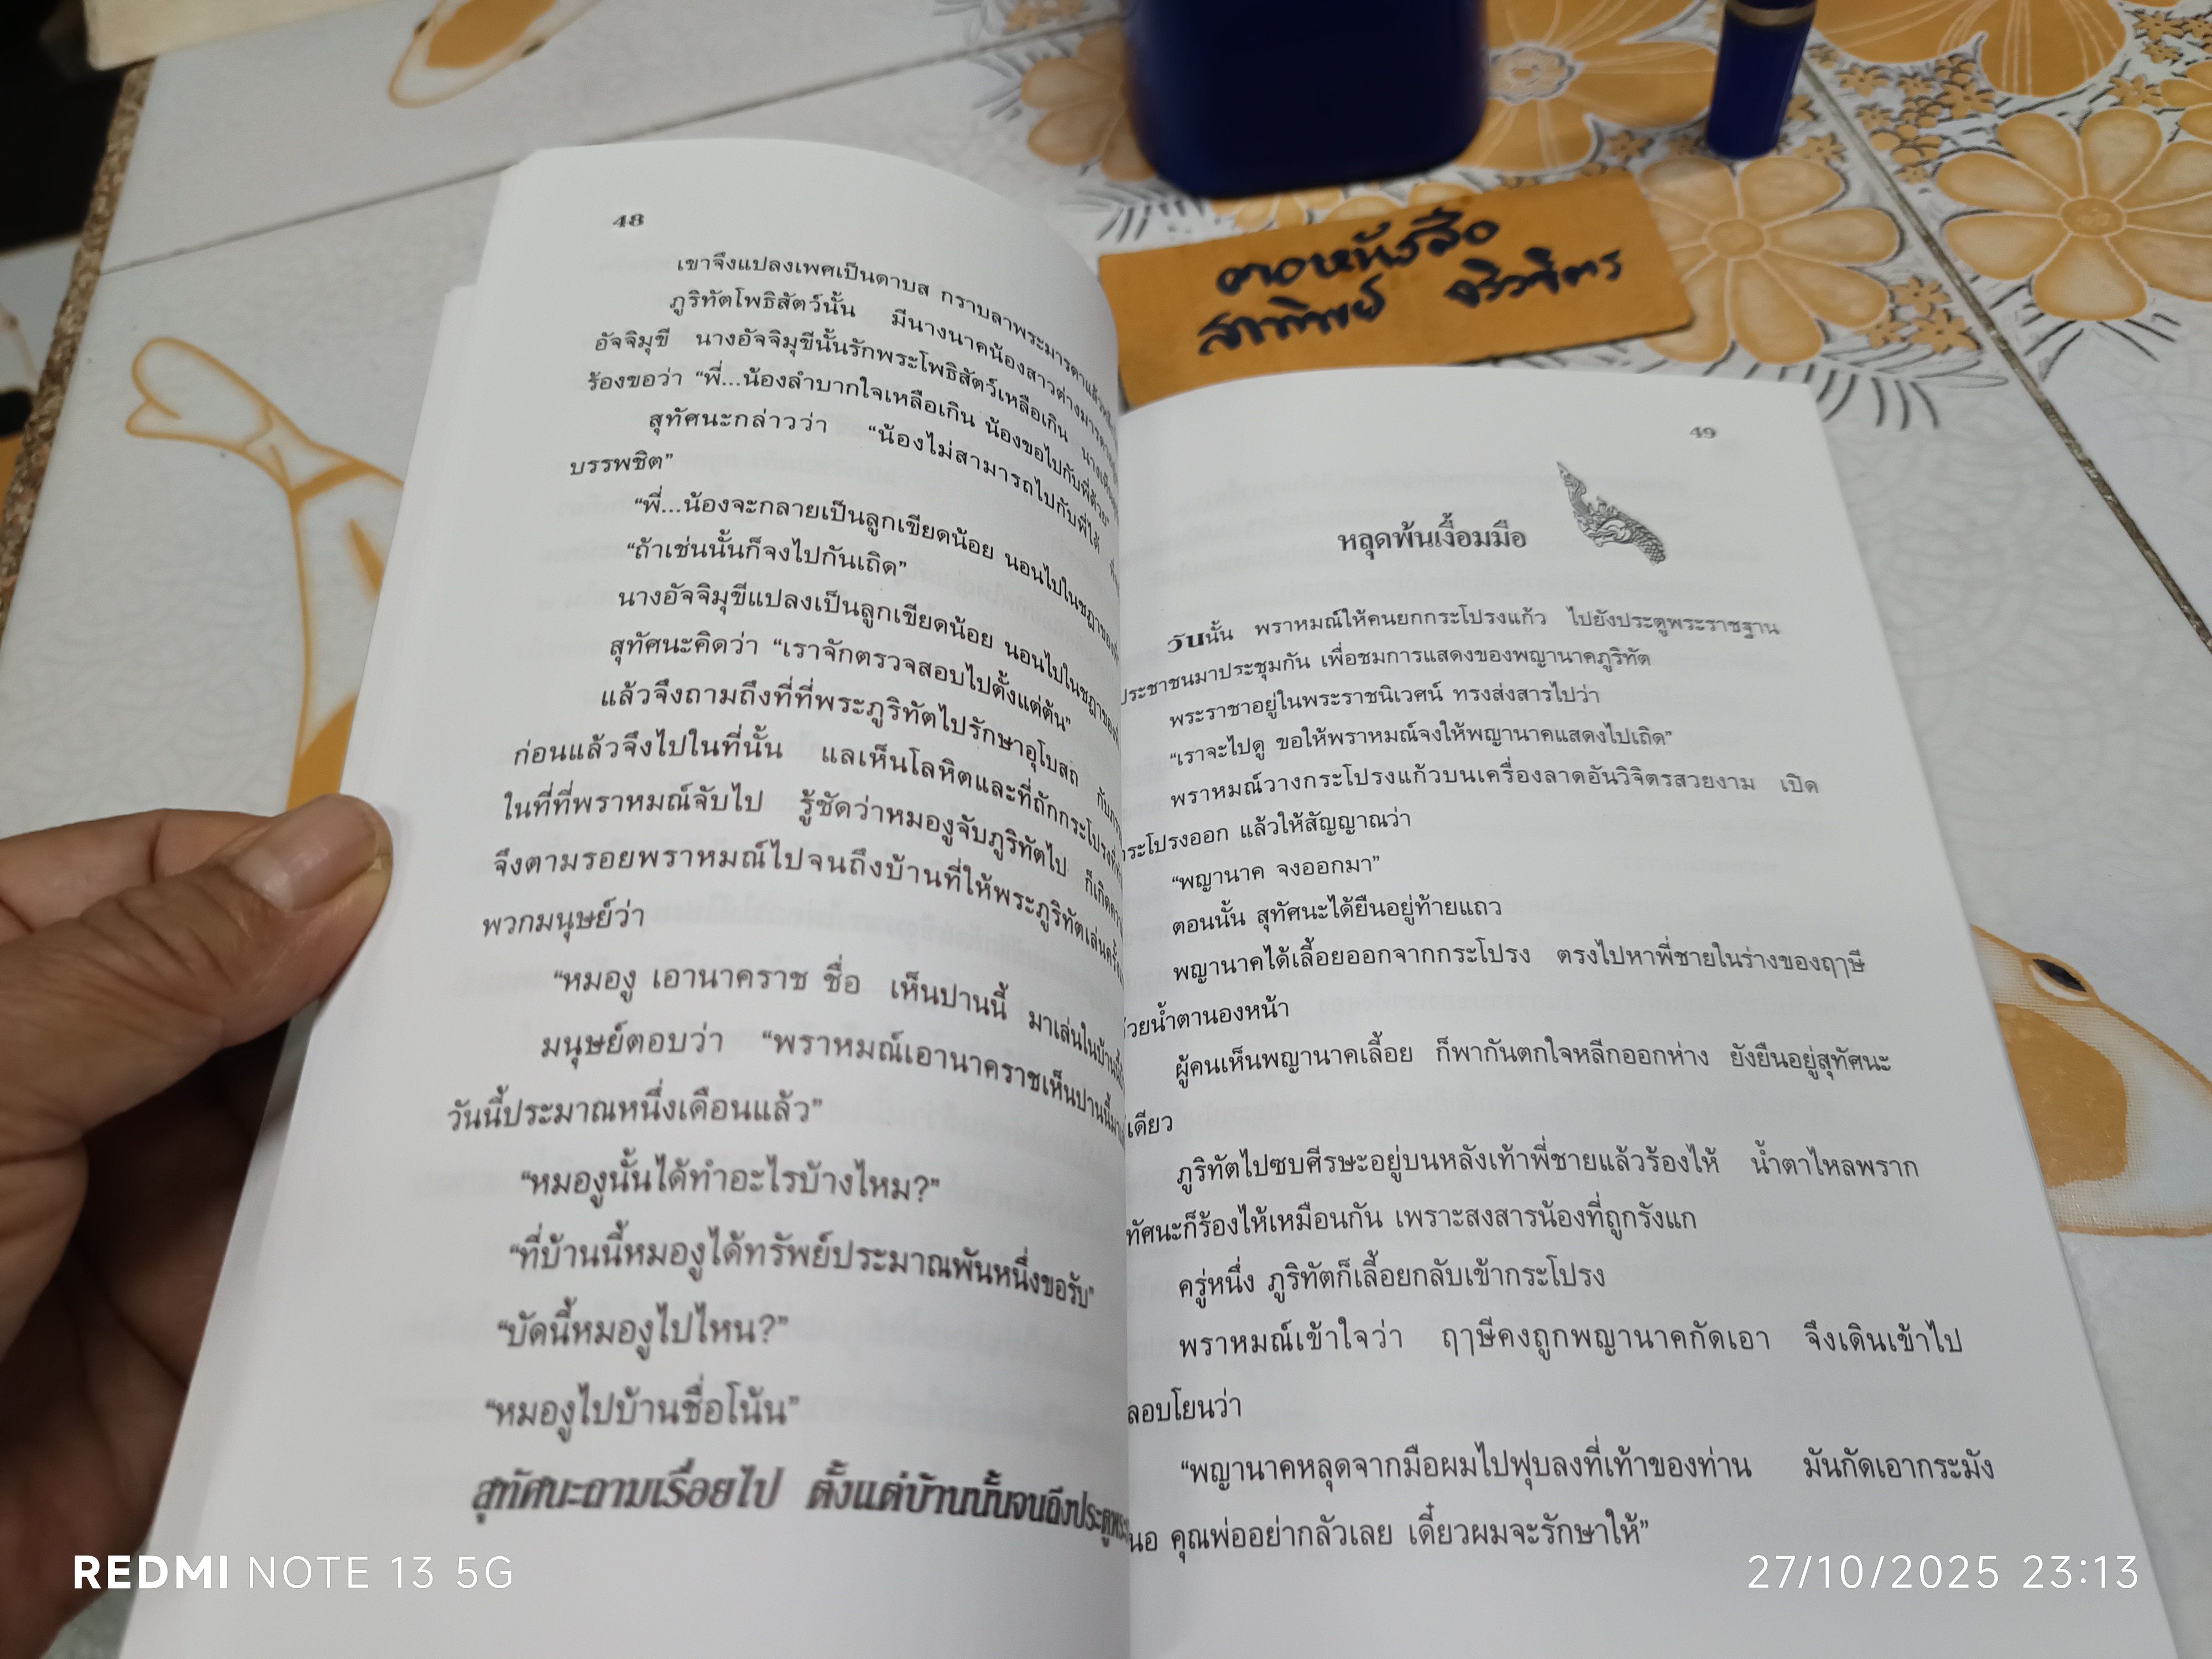 48
เขาจึงแปลงเพศเป็นดาบส กราบลาพระมารดาแล้ว
ภูริทัตโพธิสัตว์นั้น มีนางนาคน้องสาวต่างมารดา
อัจจิมุขี นางอัจจิมุขีนั้นรักพระโพธิสัตว์เหลือเกิน
ร้องขอว่า “พี่...น้องลำบากใจเหลือเกิน น้องขอไปกับพี่ด้วย”
สุทัศนะกล่าวว่า “น้องไม่สามารถไปกับพี่ได้
บรรพชิต”
“พี่...น้องจะกลายเป็นลูกเขียดน้อย นอนไปในชฎาของพี่
“ถ้าเช่นนั้นก็จงไปกันเถิด”
นางอัจจิมุขีแปลงเป็นลูกเขียดน้อย นอนไปในชฎาของพี่
สุทัศนะคิดว่า “เราจักตรวจสอบไปตั้งแต่ต้น”
แล้วจึงถามถึงที่ที่พระภูริทัตไปรักษาอุโบสถ
ก่อนแล้วจึงไปในที่นั้น แลเห็นโลหิตและที่ถักกระโปรง
ในที่ที่พราหมณ์จับไป รู้ชัดว่าหมองูจับภูริทัตไป
จึงตามรอยพราหมณ์ไปจนถึงบ้านที่ให้พระภูริทัตเล่นครั้ง
พวกมนุษย์ว่า
“หมองู เอานาคราช ชื่อ เห็นปานนี้ มาเล่นในบ้านนี้
มนุษย์ตอบว่า “พราหมณ์เอานาคราชเห็นปานนี้
วันนี้ประมาณหนึ่งเดือนแล้ว”
“หมองูนั้นได้ทำอะไรบ้างไหม?”
“ที่บ้านนี้หมองูได้ทรัพย์ประมาณพันหนึ่งขอรับ”
“บัดนี้หมองูไปไหน?”
“หมองูไปบ้านชื่อโน้น”
สุทัศนะถามเรื่อยไป ตั้งแต่บ้านนั้นจนถึงประตู
ตาอหนังสือ
49
หลุดพ้นเงื้อมมือ
วันนั้น พราหมณ์ให้คนยกกระโปรงแก้ว ไปยังประตูพระราชฐาน
ประชาชนมาประชุมกัน เพื่อชมการแสดงของพญานาคภูริทัต
พระราชาอยู่ในพระราชนิเวศน์ ทรงส่งสารไปว่า
“เราจะไปดู ขอให้พราหมณ์จงให้พญานาคแสดงไปเถิด”
พราหมณ์วางกระโปรงแก้วบนเครื่องลาดอันวิจิตรสวยงาม เปิด
กระโปรงออก แล้วให้สัญญาณว่า
“พญานาค จงออกมา”
ตอนนั้น สุทัศนะได้ยืนอยู่ท้ายแถว
พญานาคได้เลื้อยออกจากกระโปรง ตรงไปหาพี่ชายในร่างของฤๅษี
ด้วยน้ำตานองหน้า
ผู้คนเห็นพญานาคเลื้อย ก็พากันตกใจหลีกออกห่าง ยังยืนอยู่สุทัศนะ
เดียว
ภูริทัตไปซบศีรษะอยู่บนหลังเท้าพี่ชายแล้วร้องไห้ น้ำตาไหลพราก
ทัศนะก็ร้องไห้เหมือนกัน เพราะสงสารน้องที่ถูกรังแก
ครู่หนึ่ง ภูริทัตก็เลื้อยกลับเข้ากระโปรง
พราหมณ์เข้าใจว่า ฤๅษีคงถูกพญานาคกัดเอา จึงเดินเข้าไป
ลอบโยนว่า
“พญานาคหลุดจากมือผมไปฟุบลงที่เท้าของท่าน มันกัดเอากระมัง
นอ คุณพ่ออย่ากลัวเลย เดี๋ยวผมจะรักษาให้”
REDMI NOTE 13 5G
27/10/2025 23:13